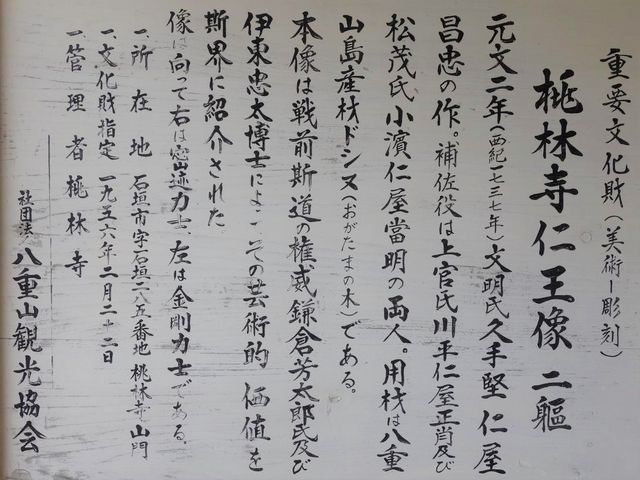 重要文化財(美術ー彫刻)
桃林寺仁王像 二軀
元文二年(西紀一七三七年)文明氏久手堅仁屋
昌忠の作。補佐役は上官氏川平仁屋正肖及び
松茂氏小濱仁屋當明の両人。用材は八重
山島産材ドシヌ(おがたまの木)である。
本像は戦前斯道の権威鎌倉芳太郎氏及び
伊東忠太博士によってその芸術的価値を
斯界に紹介された
像は向って右は密迹力士、左は金剛力士である。
一、所在地 石垣市字石垣二八五番地 桃林寺山門
一、文化財指定 一九五六年二月二十二日
一、管理者 桃林寺
社団法人 八重山観光協会